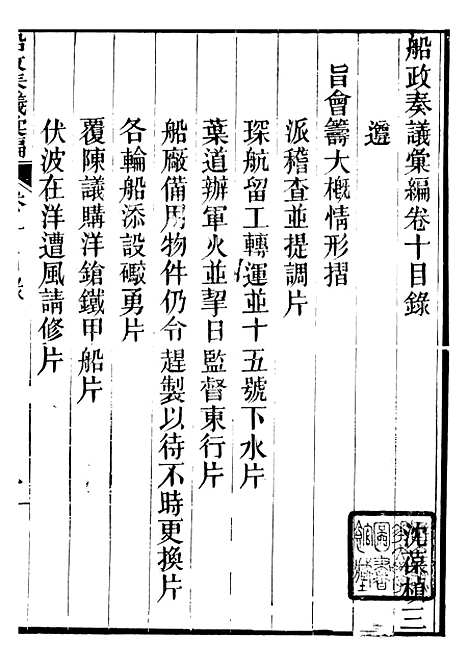 船政奏議彙編卷十目錄
沈葆楨三
遵
旨會籌大概情形摺
派稽查並提調片
琛航留工轉運並十五號下水片
葉道辦軍火並挈日監督東行片
船廠備用物件仍令趕製以待不時更換片
各輪船添設礮勇片
覆陳議購洋鎗鐵甲船片
伏波在洋遭風請修片
船政奏議彙編